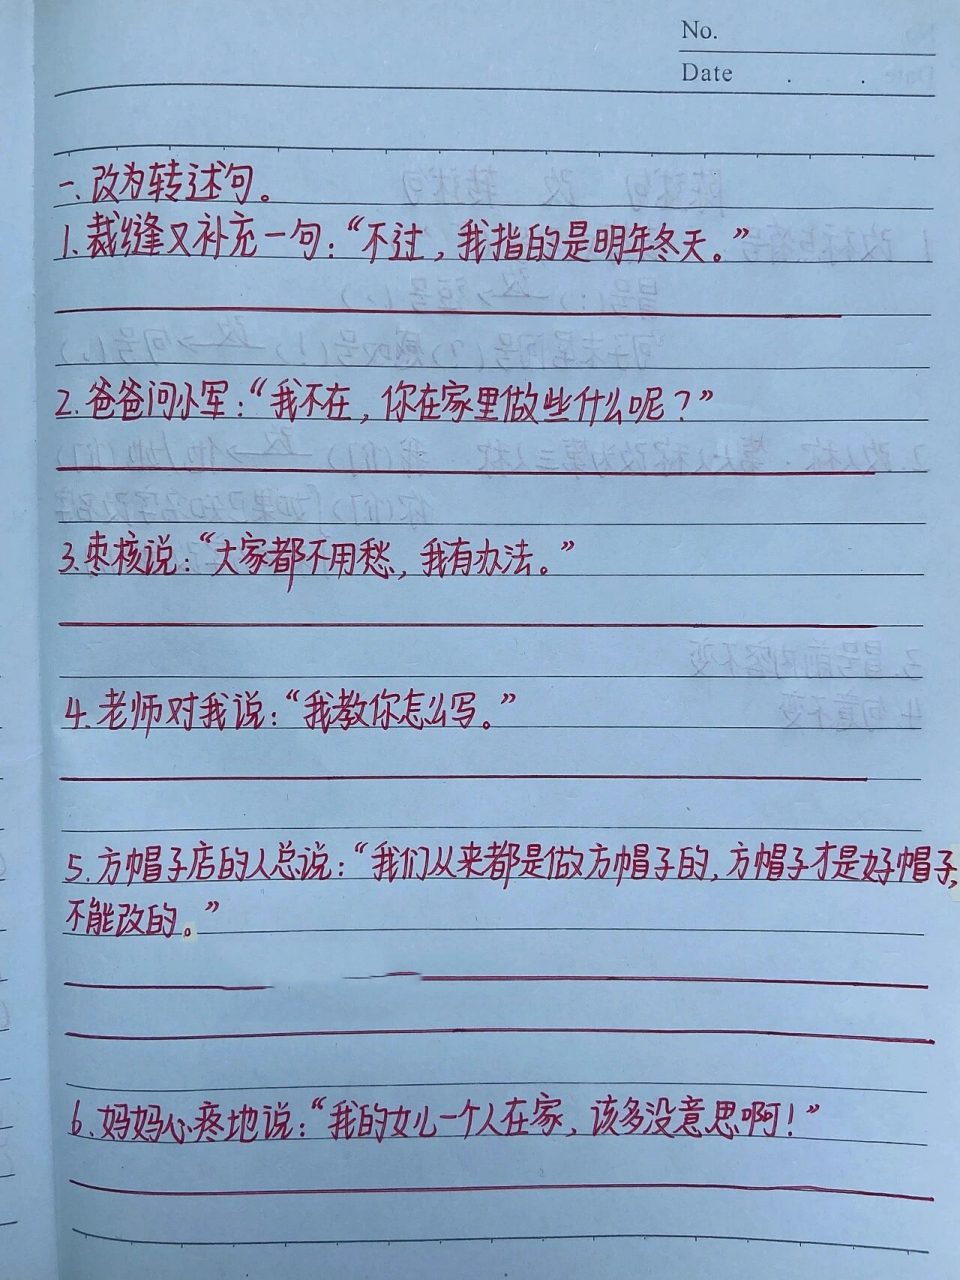 No.
Date . .
一、改为转述句。
1、裁缝又补充一句：“不过，我指的是明年冬天。”
2、爸爸问小军：“我不在，你在家里做些什么呢？”
3、枣核说：“大家都不用愁，我有办法。”
4、老师对我说：“我教你怎么写。”
5、方帽子店的人总说：“我们从来都是做方帽子的，方帽子才是好帽子，
不能改的。”
6、妈妈心疼地说：“我的女儿一个人在家，该多没意思啊！”